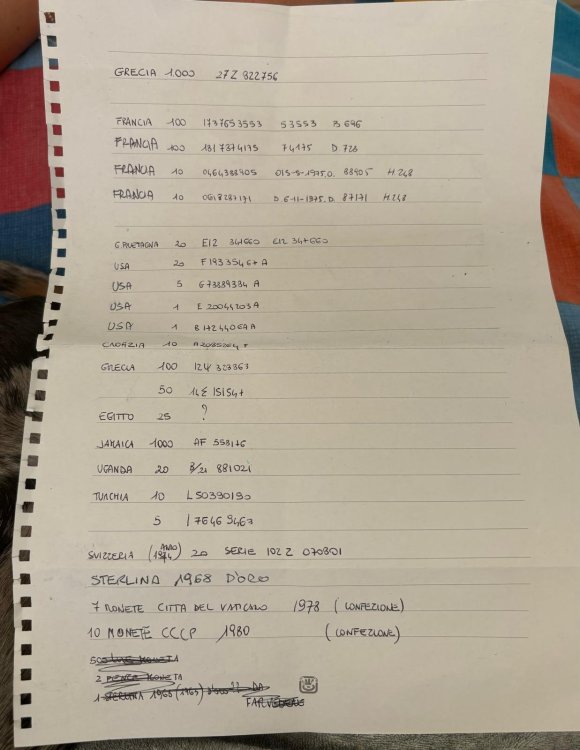 GRECIA 1.000 27Z 822756
FRANCIA 100 1737653553 53553 B.696
FRANCIA 100 1817374175 74175 D.728
FRANCIA 10 0464388905 015-5-1975.O. 88905 H.248
FRANCIA 10 0618287171 D.6-11-1975.D. 87171 H.248
G.BRETAGNA 20 E12 347660 E12 347660
USA 20 F19335467A
USA 5 G73889384 A
USA 1 E 20044203A
USA 1 B14244069A
CROAZIA 10
GRECIA 100 323363
50 151547
EGITTO 25 ?
JAMAICA 1000 AF 558176
UGANDA 20 B/21 881021
TURCHIA 10 L50390190
5 I 75469463
SVIZZERIA (ANNO 1974) 20 SERIE 102 Z 070301
STERLINA 1968 D'ORO
7 MONETE CITTÀ DEL VATICANO 1978 (CONFEZIONE)
10 MONETE CCCP 1980 (CONFEZIONE)
500 LIRE MONETA
2 MONETA
1 STERLINA 1968 (1969) D'ORO?? DA
FAR VEDERE